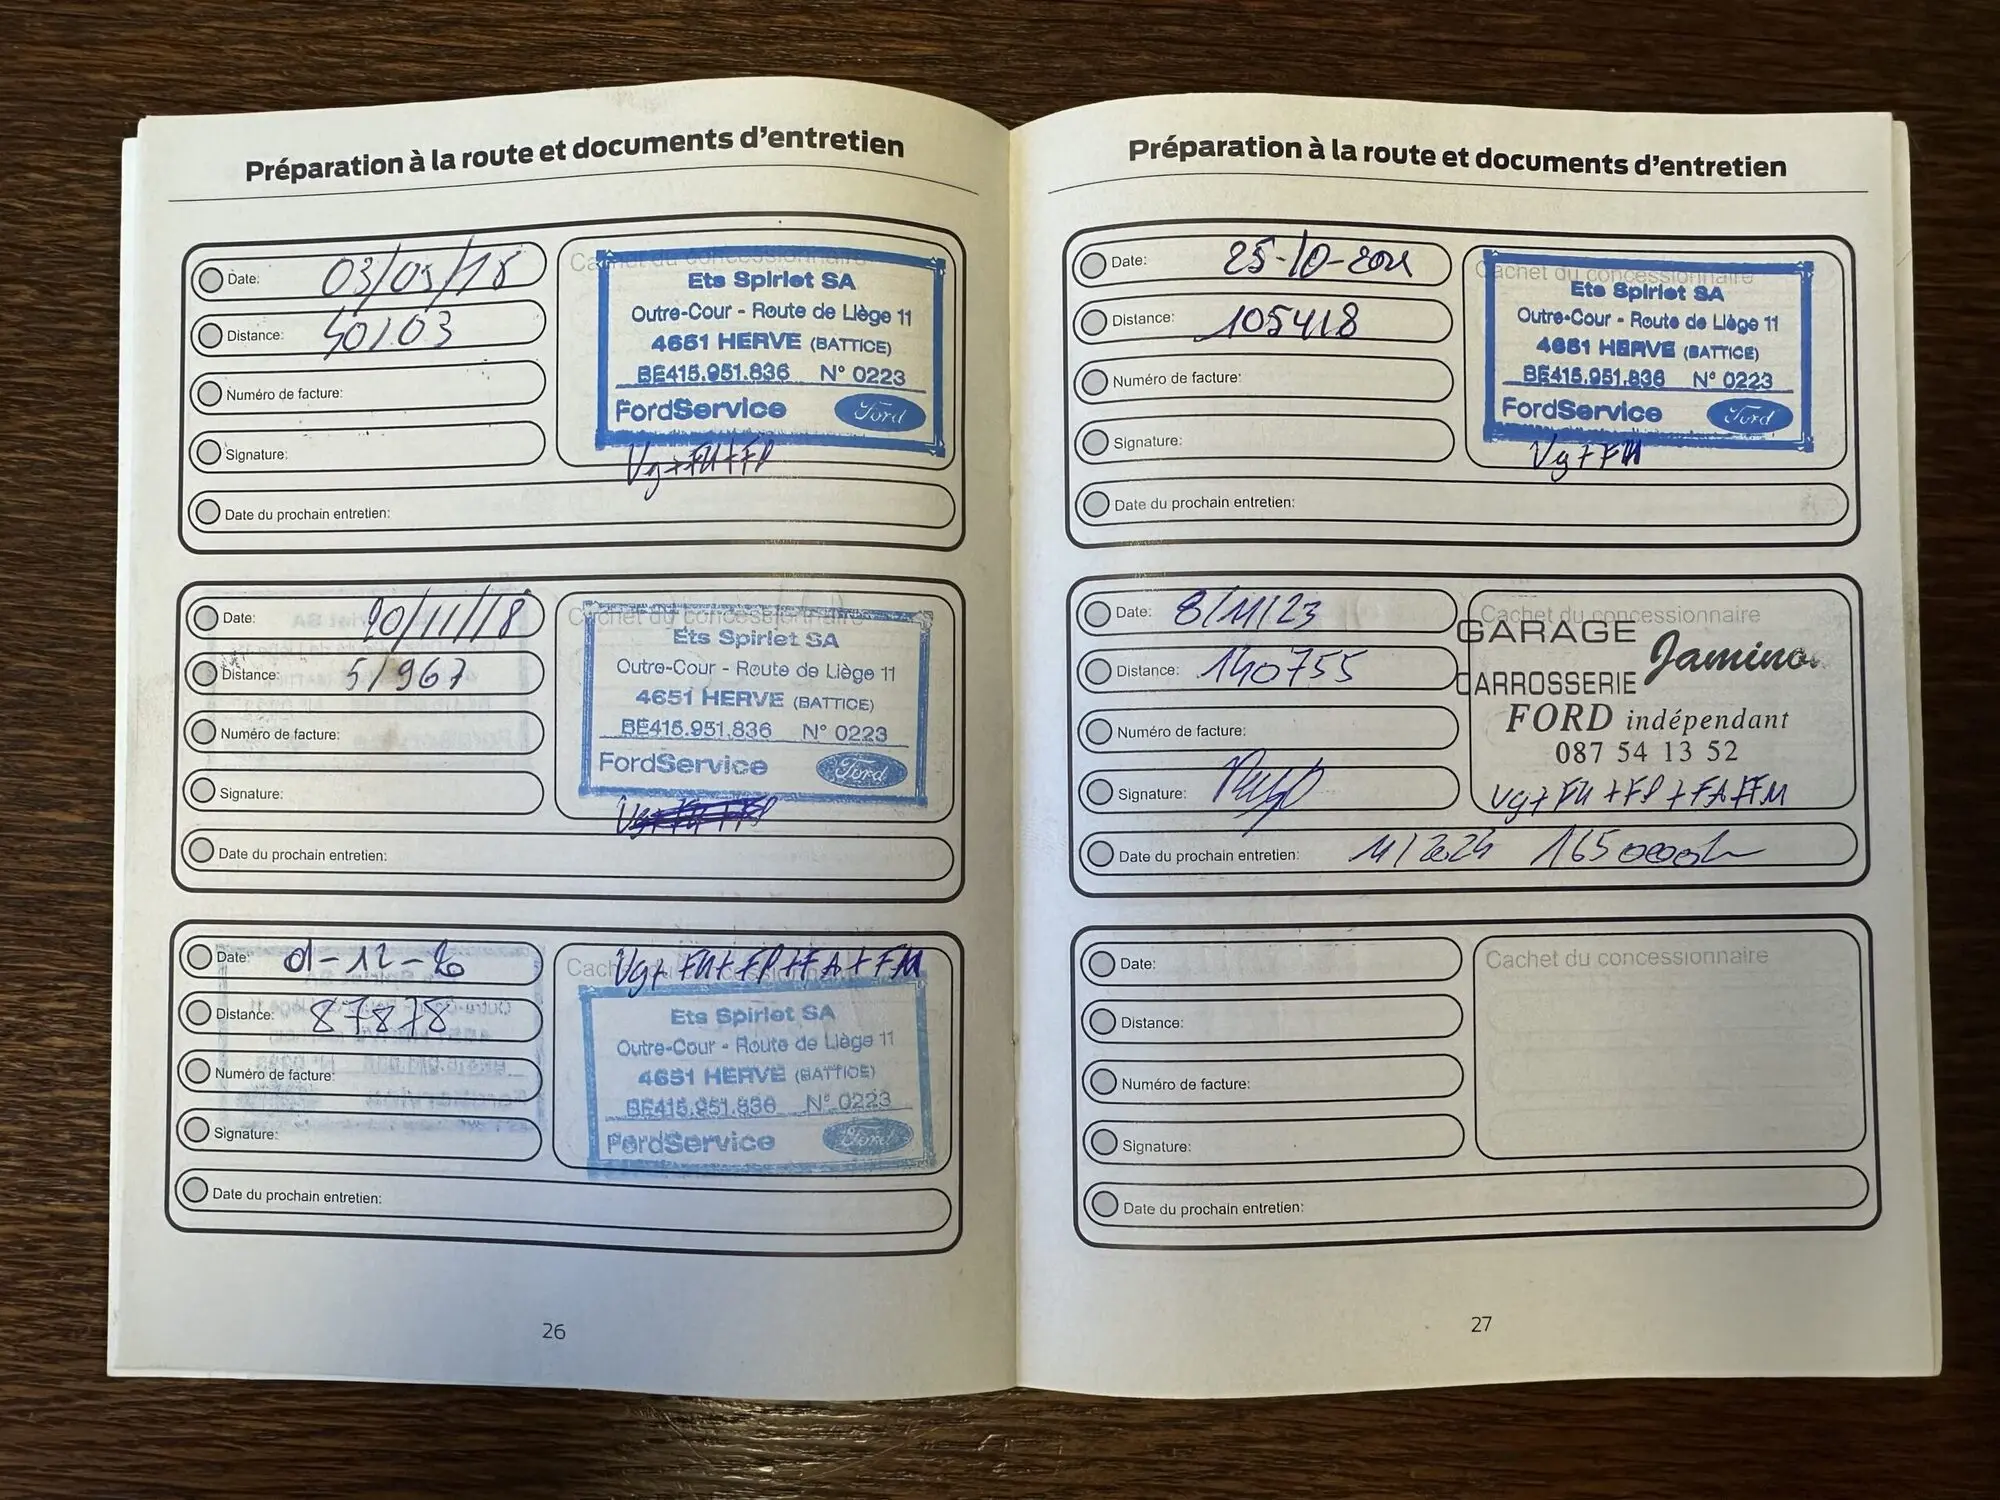 Préparation à la route et documents d'entretien
Date: 03/05/18
Distance: 40103
Numéro de facture:
Signature:
Date du prochain entretien:
Cachet du concessionnaire
Ets Spirlet SA
Outre-Cour - Route de Liège 11
4651 HERVE (BATTICE)
BE415.951.836 N° 0223
FordService Ford
Vg+FH+FP
Date: 20/11/18
Distance: 51967
Numéro de facture:
Signature:
Date du prochain entretien:
Cachet du concessionnaire
Ets Spirlet SA
Outre-Cour - Route de Liège 11
4651 HERVE (BATTICE)
BE415.951.836 N° 0223
FordService Ford
Date: 1-12-20
Distance: 87878
Numéro de facture:
Signature:
Date du prochain entretien:
Vg+FH+FP+FA+FM
Cachet du concessionnaire
Ets Spirlet SA
Outre-Cour - Route de Liège 11
4651 HERVE (BATTICE)
BE415.951.836 N° 0223
FordService Ford
26
Préparation à la route et documents d'entretien
Date: 25-10-2021
Distance: 105418
Numéro de facture:
Signature:
Date du prochain entretien:
Cachet du concessionnaire
Ets Spirlet SA
Outre-Cour - Route de Liège 11
4651 HERVE (BATTICE)
BE415.951.836 N° 0223
FordService Ford
Vg+FH
Date: 8/11/23
Distance: 140755
Numéro de facture:
Signature:
Date du prochain entretien: 11/2024 165000
Cachet du concessionnaire
GARAGE
CARROSSERIE
FORD indépendant
087 54 13 52
Vg+FH+FP+FA+FM
Date:
Distance:
Numéro de facture:
Signature:
Date du prochain entretien:
Cachet du concessionnaire
27